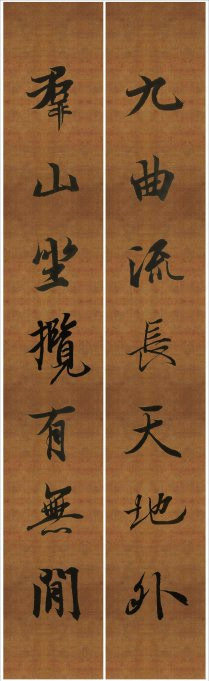 九曲流長天地外
羣山坐攬有無間